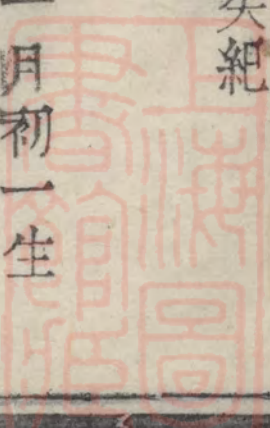 失紀
一月初一生
上海圖
書館藏